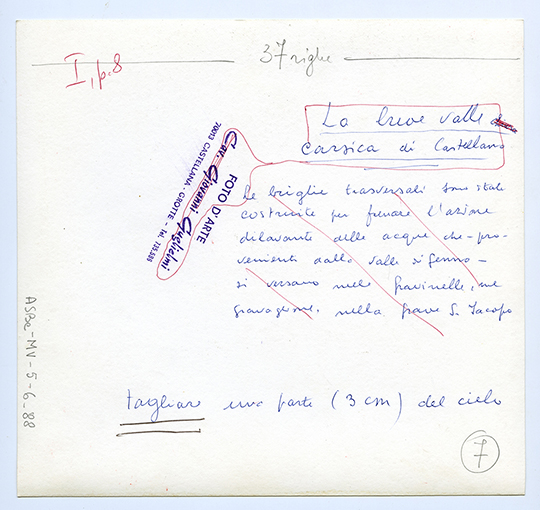 I, p. 8
37 righe
La breve valle
carsica di Castellano
FOTO D'ARTE
Cav. Giovanni Guglielmi
70013 CASTELLANA - GROTTE - Tel. 735.585
Le briglie trasversali sono state
costruite per frenare l'azione
dilavante delle acque che pro-
venienti dalla valle
si versano nelle gravinelle, nel
gravaglione, nella grave S. Jacopo
tagliare una parte (3 cm) del cielo
7
ASBa-MV-5-6-88